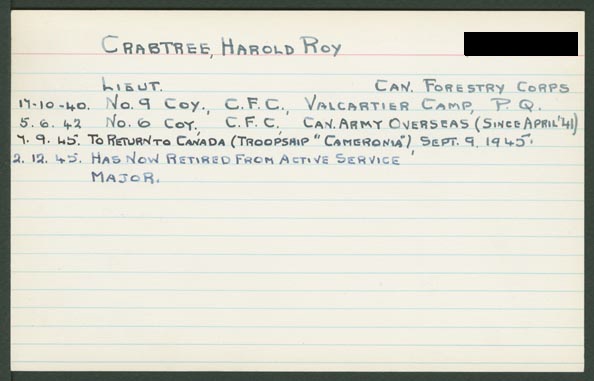 CRABTREE, HAROLD ROY
LIEUT. CAN. FORESTRY CORPS
17-10-40. No. 9 COY., C.F.C., VALCARTIER CAMP, P.Q.
5.6.42 No. 6 COY., C.F.C., CAN. ARMY OVERSEAS (SINCE APRIL '41)
7.9.45. TO RETURN TO CANADA (TROOPSHIP "CAMERONIA"), SEPT. 9, 1945.
2.12.45. HAS NOW RETIRED FROM ACTIVE SERVICE,
MAJOR.